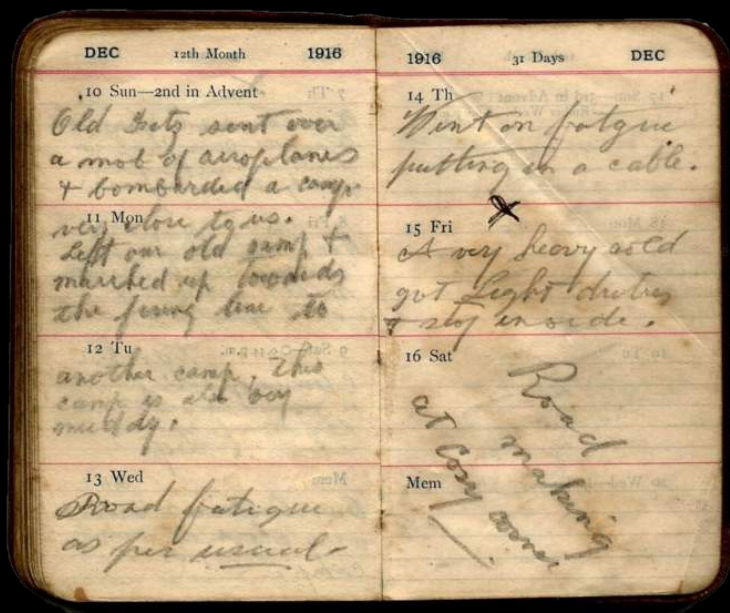 DEC 12th Month 1916
10 Sun—2nd in Advent
Old Fritz sent over
a mob of aeroplanes
& bombarded a camp
11 Mon
very close to us.
Left our old camp &
marched up towards
the firing line to
12 Tu
another camp, this
camp is also very
muddy.
13 Wed
Road fatigue
as per usual.
1916 31 Days DEC
14 Th
Went on fatgue
putting in a cable.
15 Fri
A very heavy cold
got Light duties
& stop inside.
16 Sat
Road
making
at Cosy corner
Mem